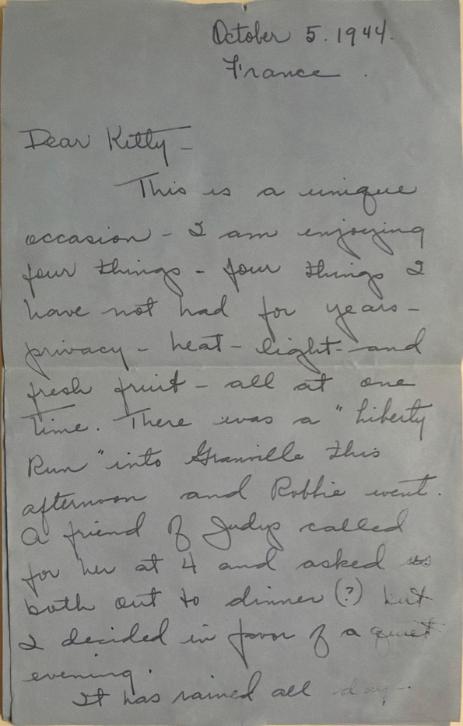 October 5. 1944.
France.
Dear Kitty -
This is a unique
occasion - I am enjoying
four things - four things I
have not had for years -
privacy - heat - light - and
fresh fruit - all at one
time. There was a "Liberty
Run" into Granville this
afternoon and Robbie went.
A friend of Judys called
for her at 4 and asked us
both out to dinner (?) but
I decided in favor of a quiet
evening.
It has rained all day.